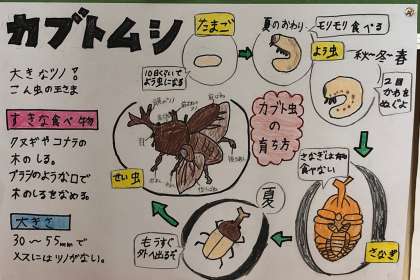 カブトムシ
大きなツノ!
こん虫の王さま
すきな食べ物
クヌギやコナラの
木のしる。
ブラシのような口で
木のしるをなめる。
大きさ
30〜55mmで
メスにはツノがない。
カブト虫の
育ち方
たまご
10日くらいで
よう虫になる
夏のおわり
モリモリ食べる
よう虫
秋〜冬〜春
2回
かわを
ぬぐよ
さなぎは何も
食べない
さなぎ
夏
もうすぐ
外へ出るぞ
せい虫